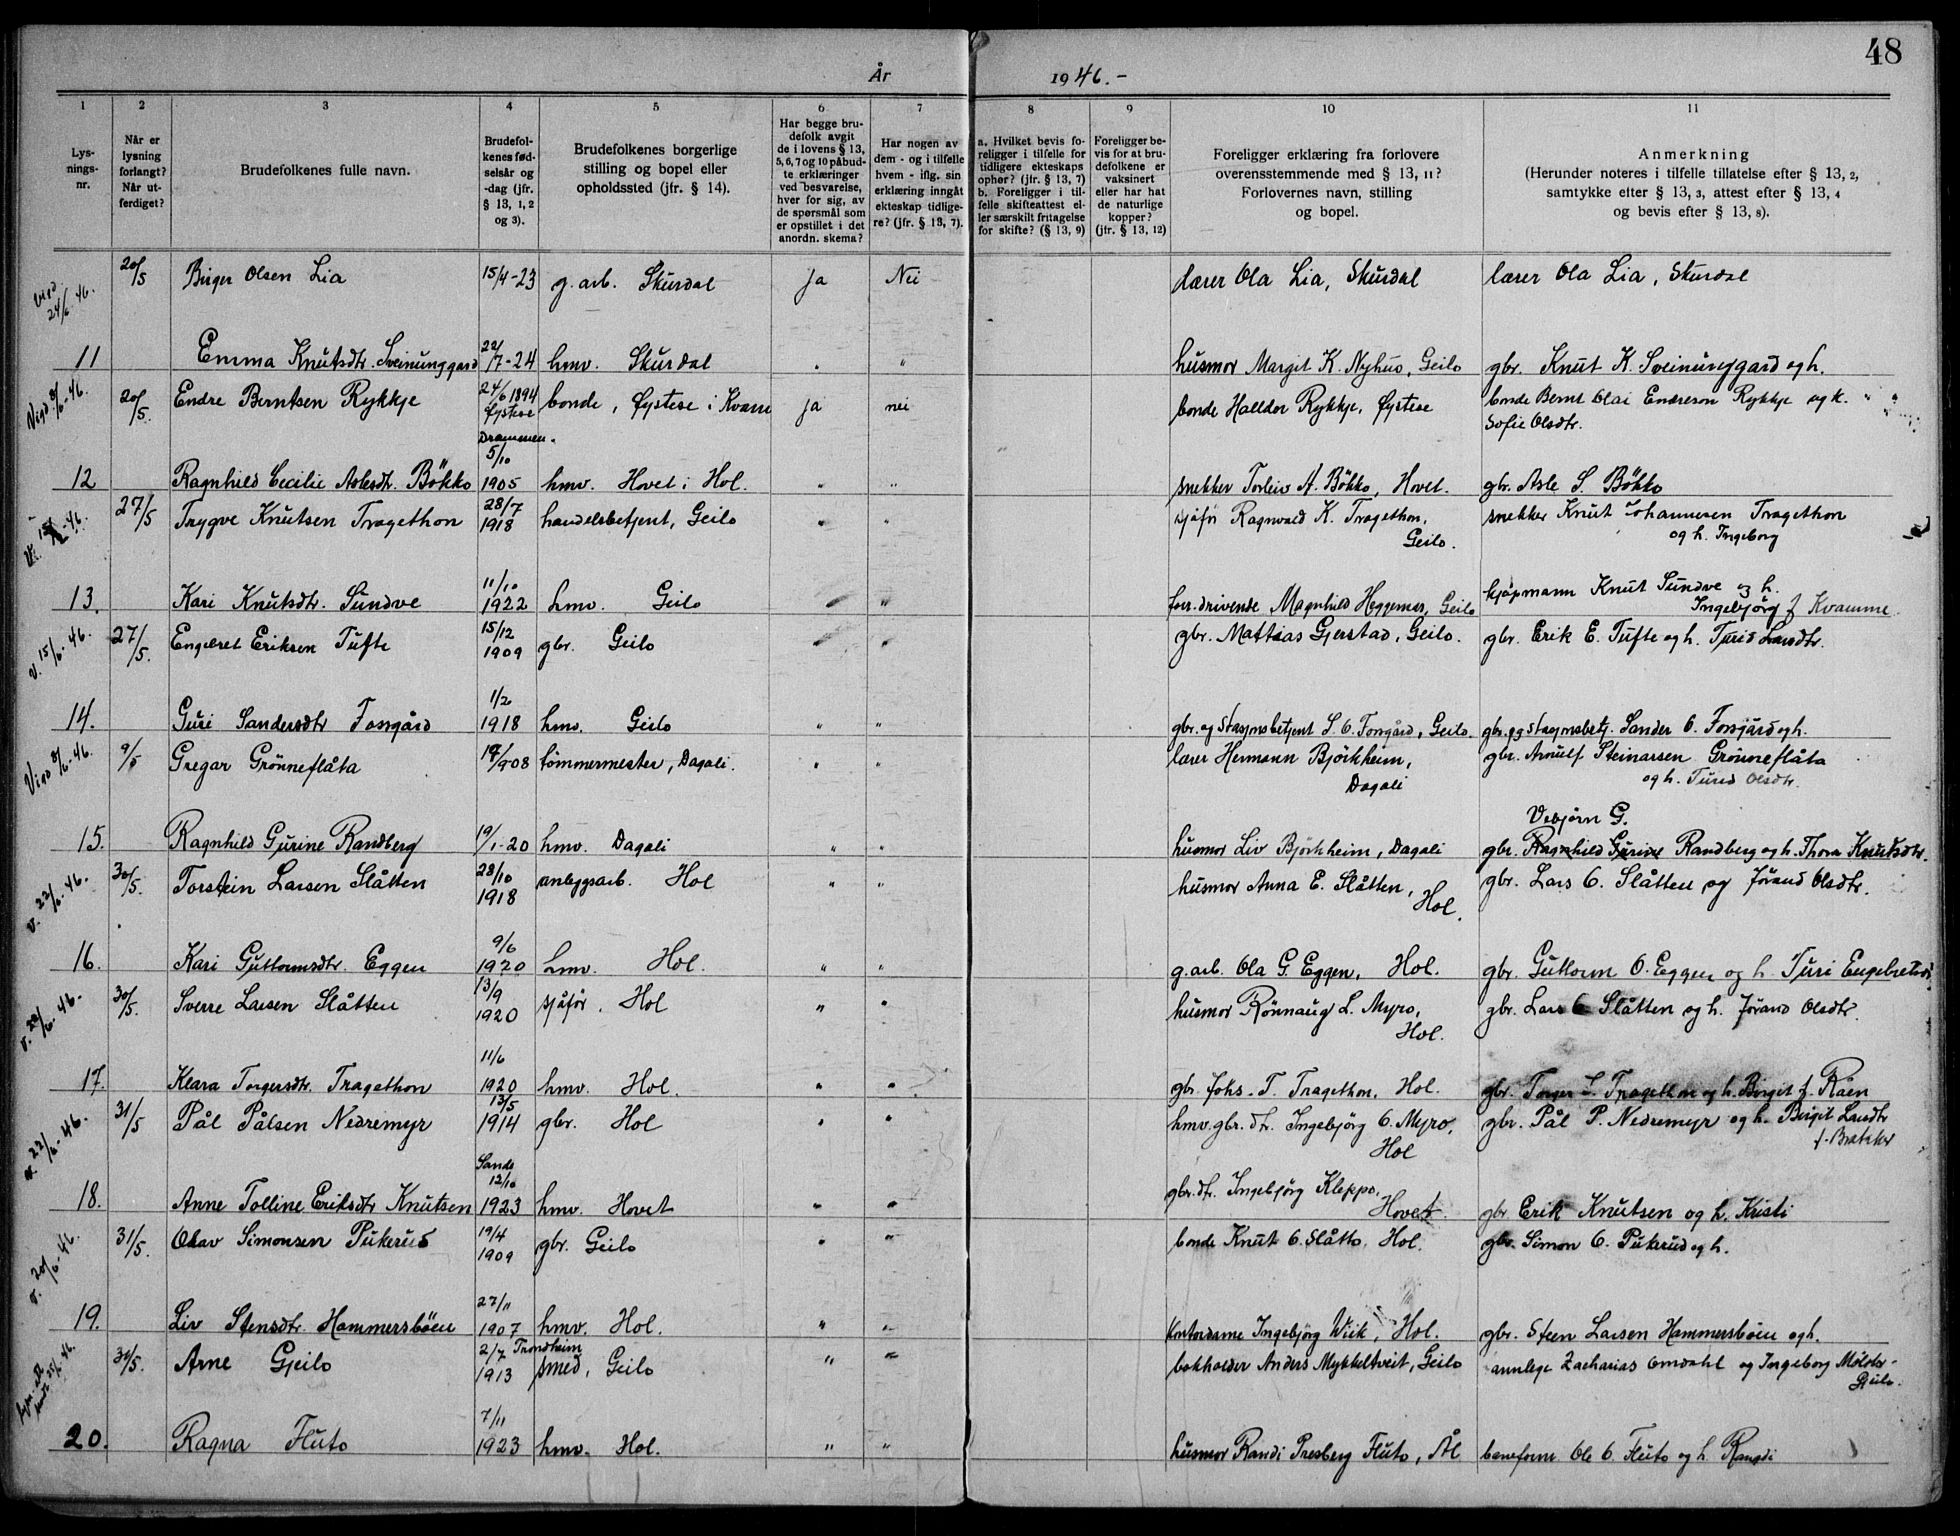 48
År 1946.-
1 2 3 4 5 6 7 8 9 10 11
Lys-
nings-
nr.
Når er
lysning
forlangt?
Når ut-
ferdiget?
Brudefolkenes fulle navn.
Brudefol-
kenes fød-
selsår og
-dag (jfr.
§ 13, 1, 2
og 3).
Brudefolkenes borgerlige
stilling og bopel eller
opholdssted (jfr. § 14).
Har begge bru-
defolk avgit
de i lovens § 13,
5, 6, 7 og 10 påbud-
te erklæringer
ved besvarelse,
hver for sig, av
de spørsmål som
er opstillet i det
anordn. skema?
Har nogen av
dem - og i tilfelle
hvem - iflg. sin
erklæring inngått
ekteskap tidlige-
re? (jfr. § 13, 7).
a. Hvilket bevis fo-
religger i tilfelle for
tidligere ekteskaps
ophør? (jfr. § 13, 7)
b. Foreligger i til-
felle skifteattest el-
ler særskilt fritagelse
for skifte? (§ 13, 9)
Foreligger be-
vis for at bru-
defolkene er
vaksinert
eller har hat
de naturlige
kopper?
(jfr. § 13, 12)
Foreligger erklæring fra forlovere
overensstemmende med § 13, 11?
Forlovernes navn, stilling
og bopel.
Anmerkning
(Herunder noteres i tilfelle tillatelse efter § 13, 2,
samtykke efter § 13, 3, attest efter § 13, 4
og bevis efter § 13, 8).
Vigd 24/6 46. 20/5 Birger Olsen Lia 15/4-23 g. arb. Skurdal Ja Nei lærer Ola Lia, Skurdal lærer Ola Lia, Skurdal
11 Emma Knutsdtr. Sveinunggard 22/7-24 hmv. Skurdal " " husmor Margit K. Nyhus, Geilo gbr. Knut K. Sveinunggard og h.
Vigd 8/6-46. 20/5. Endre Berntsen Rykkje 24/6 1894 Øystese bonde, Øystese i Kvam ja nei bonde Halldor Rykkje, Øystese bonde Bernt Olai Endreson Rykkje og k.
Sofie Olsdtr.
12 Ragnhild Cecilie Aslesdt. Bökko Drammen. 5/10 1905 hmv. Hovet i Hol. " " snekker Torleiv A. Bökko, Hovet. gbr. Asle S. Bökko
27/5 Trygve Knutsen Tragethon 28/7 1918 handelsbetjent, Geilo " " sjåför Ragnvald K. Tragethon,
Geilo.
snekker Knut Johannesen Tragethon
og h. Ingeborg
13. Kari Knutsdtr. Sundve 11/10 1922 hmv. Geilo " " forr. drivende Magnhild Heggemes, Geilo kjøpmann Knut Sundve og h.
Ingebjörg f. Kvamme.
v. 15/6-46. 27/5. Engeret Eriksen Tufte 15/12 1909 gbr. Geilo " " gbr. Mattias Gjerstad, Geilo. gbr. Erik E. Tufte og h. Turid Larsdtr.
14. Guri Sandersdtr Fossgård 1/2 1918 hmv. Geilo " " gbr. og Stasjonsbetjent S. O. Fossgård, Geilo. gbr. og Stasjonsbetj. Sander O. Fossgård og h.
Vigd 8/6-46. 9/5 Gregar Grönneflåta 908 tömmermester, Dagali. " " lærer Hermann Björkheim,
Dagali
gbr. Arnulf Steinarsen Grönneflåta
og h. Turid Olsdtr.
15. Ragnhild Gurine Randberg 19/1-20 hmv. Dagali " " husmor Liv Björkheim, Dagali Vebjørn G.
gbr. Ragnhild Gurine Randberg og h. Thora Knutsdtr.
v. 22/6-46. 30/5. Torstein Larsen Slåtten 28/10 1918 anleggsarb. Hol " " husmor Anna E. Slåtten,
Hol.
gbr. Lars O. Slåtten og Jörand Olsdtr.
16. Kari Guttormsdtr. Eggen 9/6 1920 hmv. Hol. " " g. arb. Ola G. Eggen, Hol. gbr. Guttorm O. Eggen og h. Turi Engebretsd.
v. 22/6-46. 30/5. Sverre Larsen Slåtten 13/9 1920 sjåför. Hol " " husmor Rönnaug L. Myro,
Hol.
gbr. Lars O Slåtten og h. Jörand Olsdtr.
17. Klara Torgersdtr. Tragethon 11/6 1920 hmv. Hol. " " gbr. Johs. T. Tragethon, Hol. gbr. Torger S. Tragethon og h. Birgit f. Råen
v. 22/6-46. 31/5 Pål Pålsen Nedremyr 13/5 1914 gbr. Hol " " hmv. gbr. dt. Ingebjörg O. Myro,
Hol
gbr. Pål P. Nedremyr og h. Birgit Larsdtr
18. Anne Tolline Eriksdtr Knutsen Sande 12/10 1923 hmv. Hovet " " gbr. dt. Ingebjörg Kleppo,
Hovet.
gbr. Erik Knutsen og h. Kristi
v. 20/6-46. 31/5. Olav Simonsen Pukerud 19/4 1909 gbr. Geilo " " bonde Knut O. Slåtto, Hol. gbr. Simon O. Pukerud og h.
19. Liv Stensdtr. Hammersböen 27/11 1907 hmv. Hol. " " Kontordame Ingebjörg Wiik, Hol. gbr. Steen Larsen Hammersböen og h.
31/5. Arne Gjeilo 2/7 Trondheim 1913 smed, Geilo " " bokholder Anders Mykkeltveit, Geilo annlegg Zacharias Omdahl og Ingeborg
20. Ragna Fluto 7/11 1923 hmv. Hol. " " husmor Randi Presberg Fluto, Ål baneform Ole O. Fluto og h. Randi